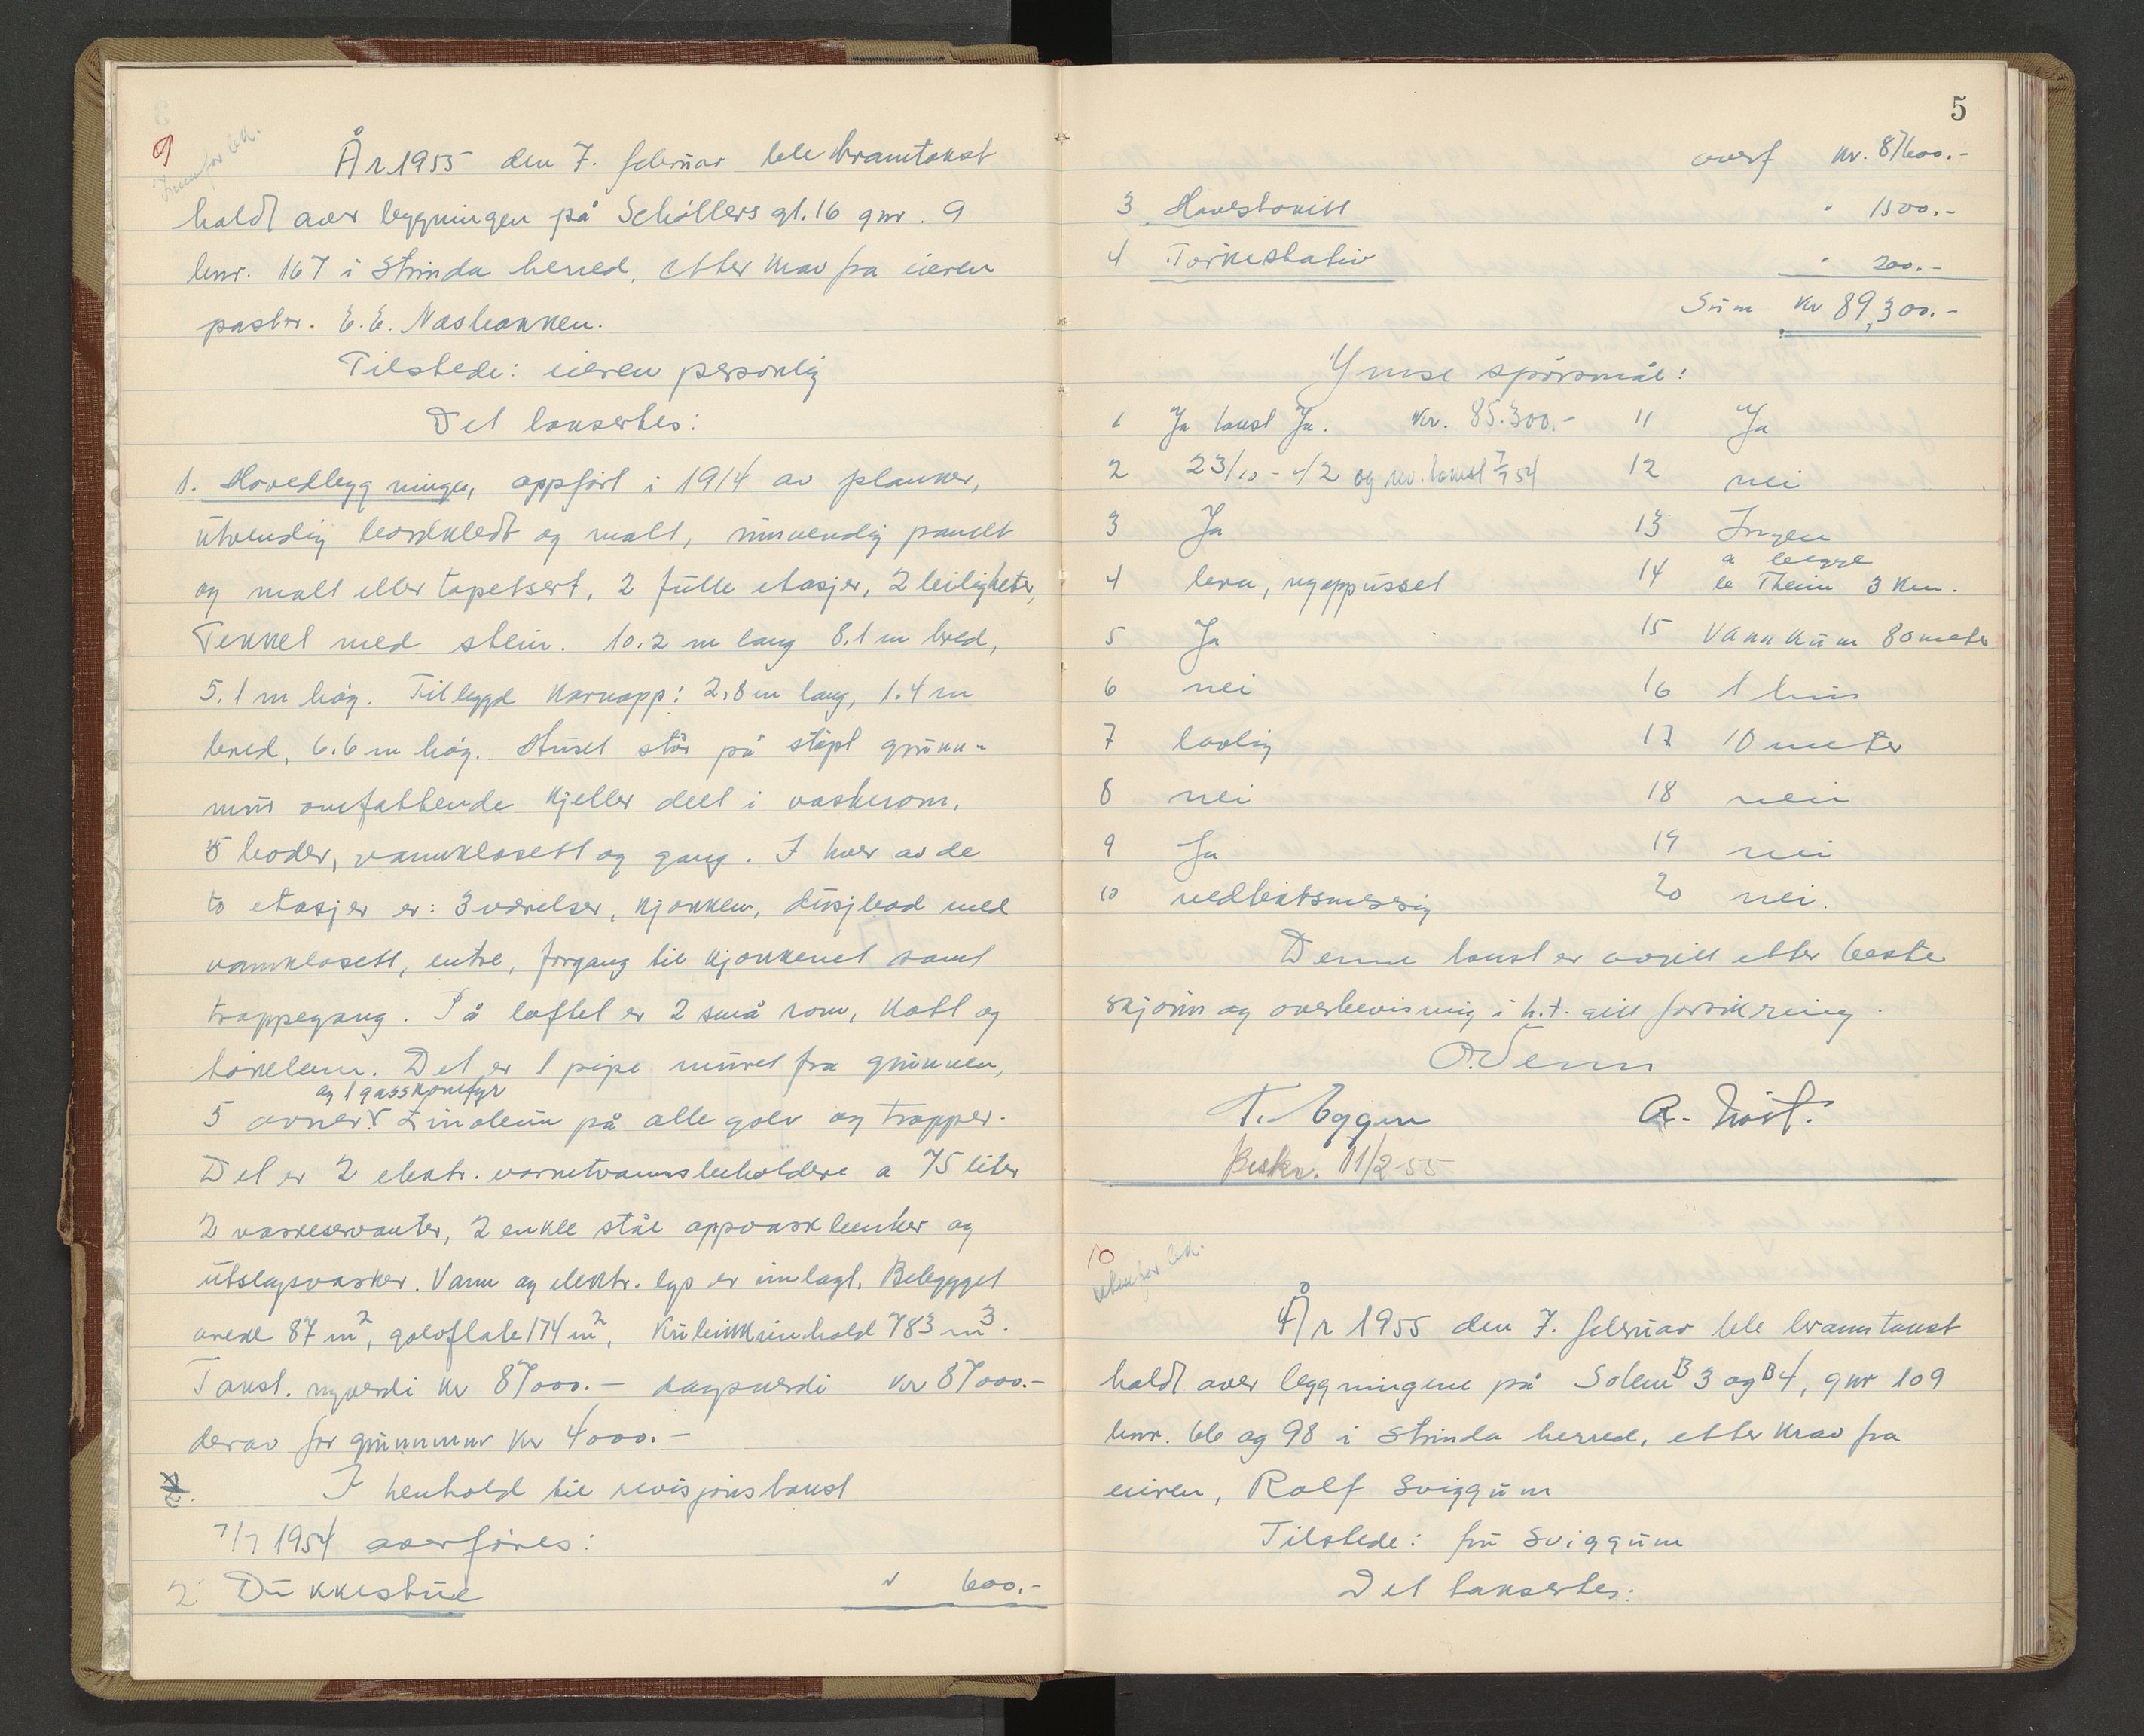 9
År 1955 den 7. februar ble branntakst
holdt over bygningen på Schøllers gt. 16 gnr. 9
bnr. 167 i Strinda herred, etter krav fra eieren
E. E. Nasbakken.
Tilstede: eieren personlig
Det taksertes:
1. Hovedbygningen, oppført i 1914 av planker,
utvendig bordkledt og malt, innvendig panelt
og malt eller tapetsert, 2 fulle etasjer, 2 leiligheter,
Tekket med stein. 10.2 m lang 8.1 m bred,
5.1 m høg. Tilbygd karnapp: 2,8 m lang, 1.4 m
bred, 6.6 m høg. Huset står på støpt grunn-
mur omfattende kjeller delt i vaskerom,
5 boder, vannklosett og gang. I hver av de
to etasjer er: 3 værelser, kjøkken, dusjbad med
vannklosett, entre, forgang til kjøkkenet samt
trappegang. På loftet er 2 små rom, kott og
tørkelem. Det er 1 pipe muret fra grunnen,
og 1 gasskomfyr
5 ovner. Linoleum på alle golv og trapper.
Det er 2 elektr. varmtvannsbeholdere a 75 liter
2 vaskeservanter, 2 enkle stål oppvaskbenker og
utslagsvasker. Vann og elektr. lys er innlagt. Bebygget
areal 87 m², golvflate 174 m², kubikkinnhold 783 m³.
Takst. nyverdi kr 87000.- dagsverdi kr 87000.-
derav for grunnmur kr 4000.-
I henhold til revisjonstakst
7/7 1954 overføres:
2 Dukkestue " 600.-
5
overf kr. 87600.-
3 Havestakitt " 1500.-
4 Tørkestativ " 200.-
Sum kr 89,300.-
Ymse spørsmål:
1 Ja takst Ja. kr. 85.300.- 11 Ja
2 23/10-42 og rev. takst 7/7 54 12 nei
3 Ja 13 Ingen
a
4 bra, nyoppusset 14 b Theim 3 km.
5 Ja 15 Vannkum 80 meter
6 nei 16 1 hus
7 lovlig 17 10 meter
8 nei 18 nei
9 Ja 19 nei
10 vedliktsmessig 20 nei.
Denne takst er avgitt etter beste
skjønn og overbevisning i h.t. gitt forsikring.
O. Venn
T. Eggen A. Høst.
Beskr. 11/2-55
10
År 1955 den 7. februar ble branntakst
holdt over bygningene på Solem B 3 og B 4, gnr 109
bnr. 66 og 98 i Strinda herred, etter krav fra
eieren, Rolf Sviggum
Tilstede: fru Sviggum
Det taksertes: